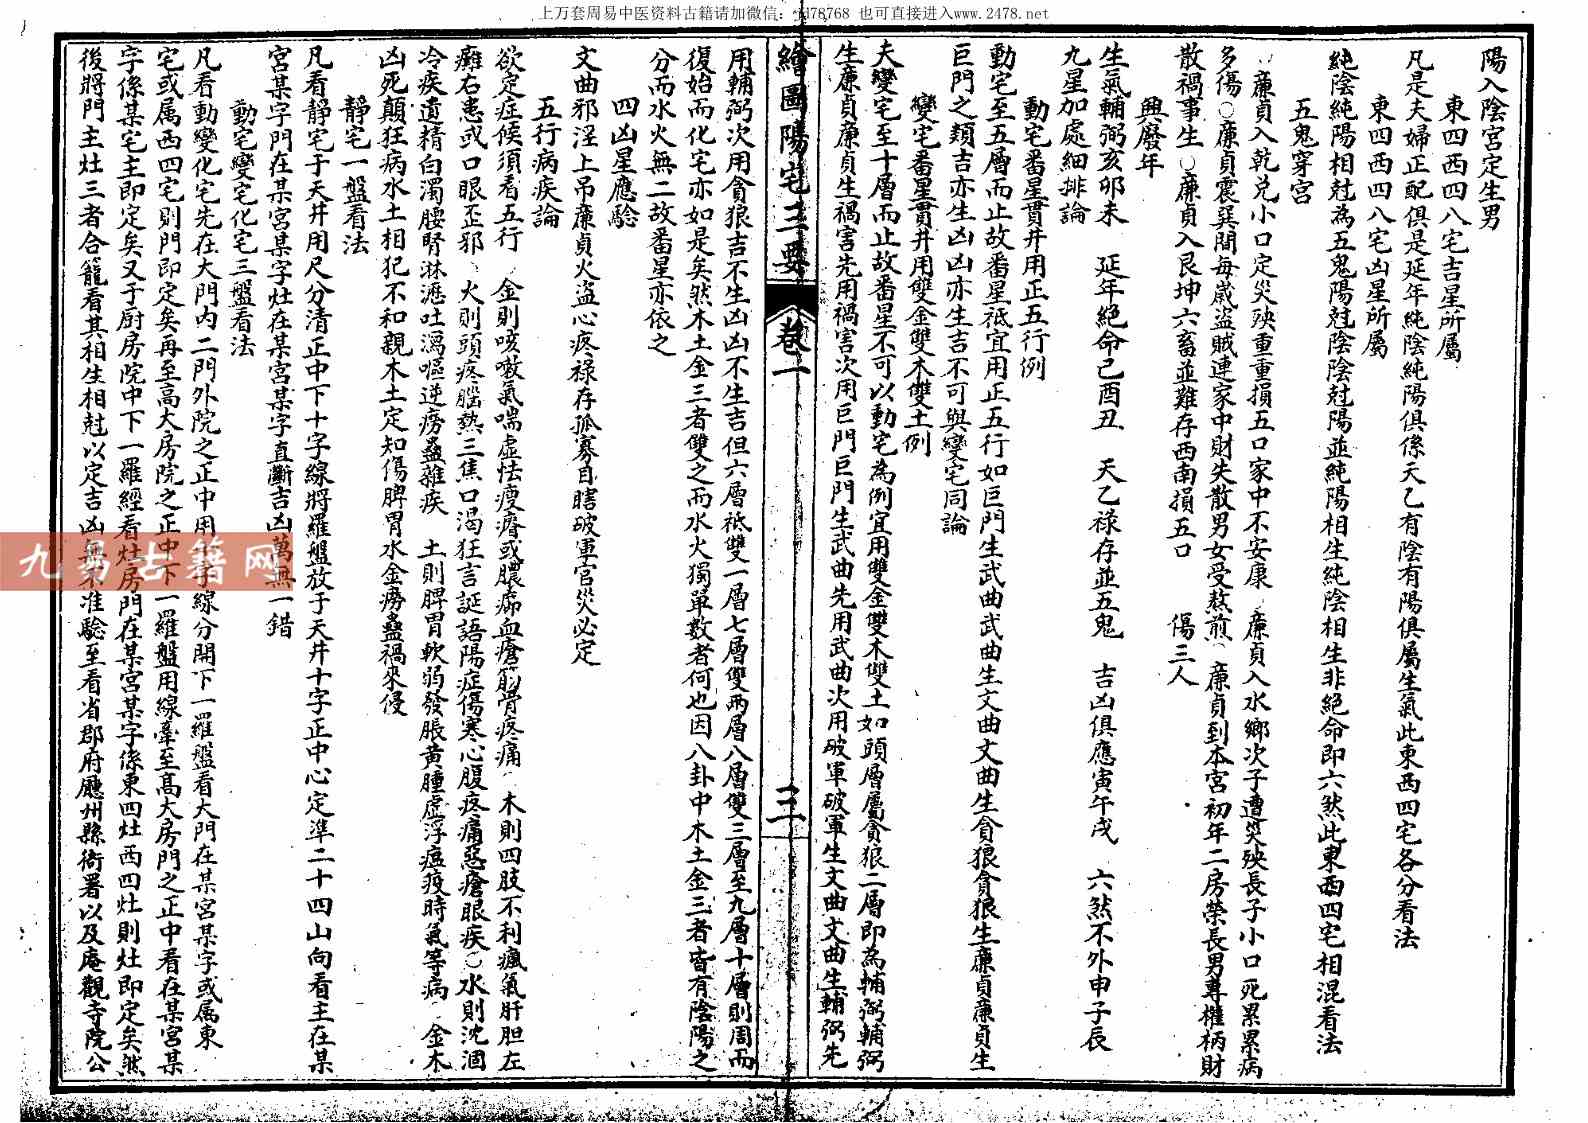 上万套周易中医资料古籍请加微信: 1d78768 也可直接进入www.2478.net
陽入陰宮定生男
東四西四八宅吉星所屬
凡是夫婦正配俱是延年純陰純陽俱係天乙有陰有陽俱屬生氣此東西四宅各分看法
東四西四八宅凶星所屬
純陰純陽相尅為五鬼陽尅陰陰尅陽並純陽相生純陰相生非絕命即六煞此東西四宅相混看法
五鬼穿宮
廉貞入乾兑小口定災殃重重損五口家中不安康 廉貞入水鄉次子遭災殃長子小口死累累病
多傷○廉貞震巽間每歲盜賊連家中財失散男女受熬煎 廉貞到本宮初年二房榮長男專權柄財
散禍事生○廉貞入艮坤六畜並難存西南損五口 傷三人
興廢年
生氣輔弼亥卯未 延年絕命己酉丑 天乙祿存並五鬼 吉凶俱應寅午戌 六煞不外申子辰
九星加處細排論
動宅番星貫井用正五行例
動宅至五層而止故番星祗宜用正五行如巨門生武曲武曲生文曲文曲生貪狼貪狼生廉貞廉貞生
巨門之類吉亦生凶凶亦生吉不可與變宅同論
變宅番星貫井用雙金雙木雙土例
夫變宅至十層而止故番星不可以動宅為例宜用雙金雙木雙土如頭層屬貪狼二層即為輔弼輔弼
生廉貞廉貞生禍害先用禍害次用巨門巨門生武曲先用武曲次用破軍破軍生文曲文曲生輔弼先
繪圖陽宅三要 卷一 三
用輔弼次用貪狼吉不生凶凶不生吉但六層祗雙一層七層雙兩層八層雙三層至九層十層則周而
復始而化宅亦如是矣然木土金三者雙之而水火獨單數者何也因八卦中木土金三者皆有陰陽之
分而水火無二故番星亦依之
四凶星應驗
文曲邪淫上吊廉貞火盜心疼祿存孤寡目瞎破軍官災必定
五行病疾論
欲定症候須看五行 金則咳嗽氣喘虛怯瘦瘠或膿痂血瘡筋骨疼痛 木則四肢不利瘋氣肝胆左
癱右患或口眼歪邪 火則頭疼腦熱三焦口渴狂言誕語陽症傷寒心腹疼痛惡瘡眼疾○水則沈涸
冷疾遺精白濁腰腎淋瀝吐瀉嘔逆癆蠱雜疾 土則脾胃軟弱發脹黃腫虛浮瘟疫時氣等病 金木
凶死顛狂病水土相犯不和親木土定知傷脾胃水金癆蠱禍來侵
靜宅一盤看法
凡看靜宅于天井用尺分清正中下十字線將羅盤放于天井十字正中心定準二十四山向看主在某
宮某字門在某宮某字灶在某宮某字直斷吉凶萬無一錯
動宅變宅化宅三盤看法
凡看動變化宅先在大門內二門外院之正中用十字線分開下一羅盤看大門在某宮某字或属東
宅或属西四宅則門即定矣再至高大房院之正中下一羅盤用線牽至高大房門之正中看在某宮某
字係某宅主即定矣又于廚房院中下一羅經看灶房門在某宮某字係東四灶西四灶則灶即定矣然
後將門主灶三者合籠看其相生相尅以定吉凶無不准驗至看省郡府廳州縣衙署以及庵觀寺院公
九易古籍网